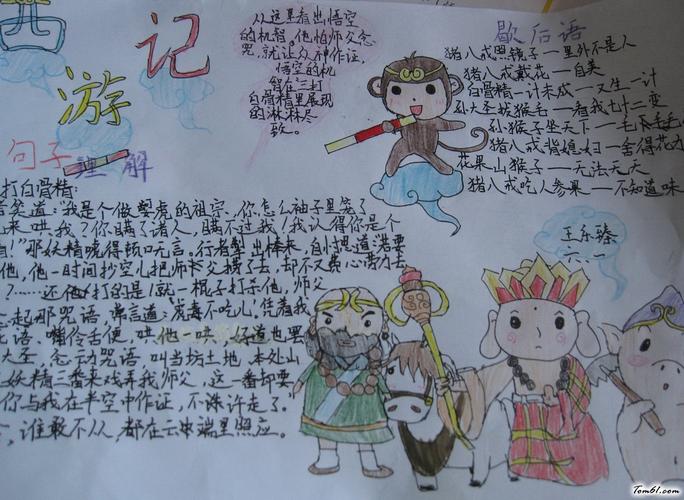 西
游
记
从这里看出悟空
的机智,他怕师父念
咒,就让众神作证,
悟空的机
智在三打
白骨精里展现
的淋林尽
致。
歇后语
猪八戒照镜子—里外不是人
猪八戒戴花—自美
白骨精—计未成—又生一计
孙大圣拔猴毛—看我七十二变
孙猴子坐天下—毛
猪八戒背媳妇—舍得花力
花果山猴子—无法无天
猪八戒吃人参果—不知道味
句子理解
打白骨精:
笑道:“我是个做
的祖宗,你怎么袖子里笼了
来哄我?你瞒了诸人,瞒不过我!我认得你是个
!”那妖精唬得顿口无言。行者掣出棒来,自忖思道:“若要
他,他一时抄空儿把师父捞了去,却不又费心劳力去
?……还他打的是!就一棍子打杀他,师父
念起那咒语,常言道:‘虎毒不吃儿’,凭着我
花语,嘴伶舌便,哄他一哄,好道也罢
大圣,念动咒语叫当坊土地、本处山
妖精三番来戏弄我师父,这一番却要
你与我在半空中作证,不许走了。
,谁敢不从,都在云端里照应。
王乐臻
一、一
Tom61.com